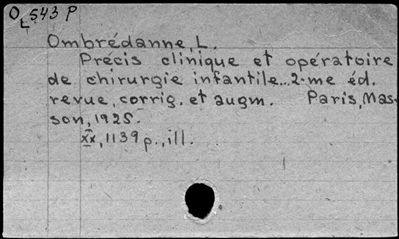 OL543 P
Ombrédanne, L.
Précis clinique et opératoire
de chirurgie infantile...2-me éd.
revue, corrig. et augm. Paris, Mas-
son, 1925.
XX, 1139 p., ill.